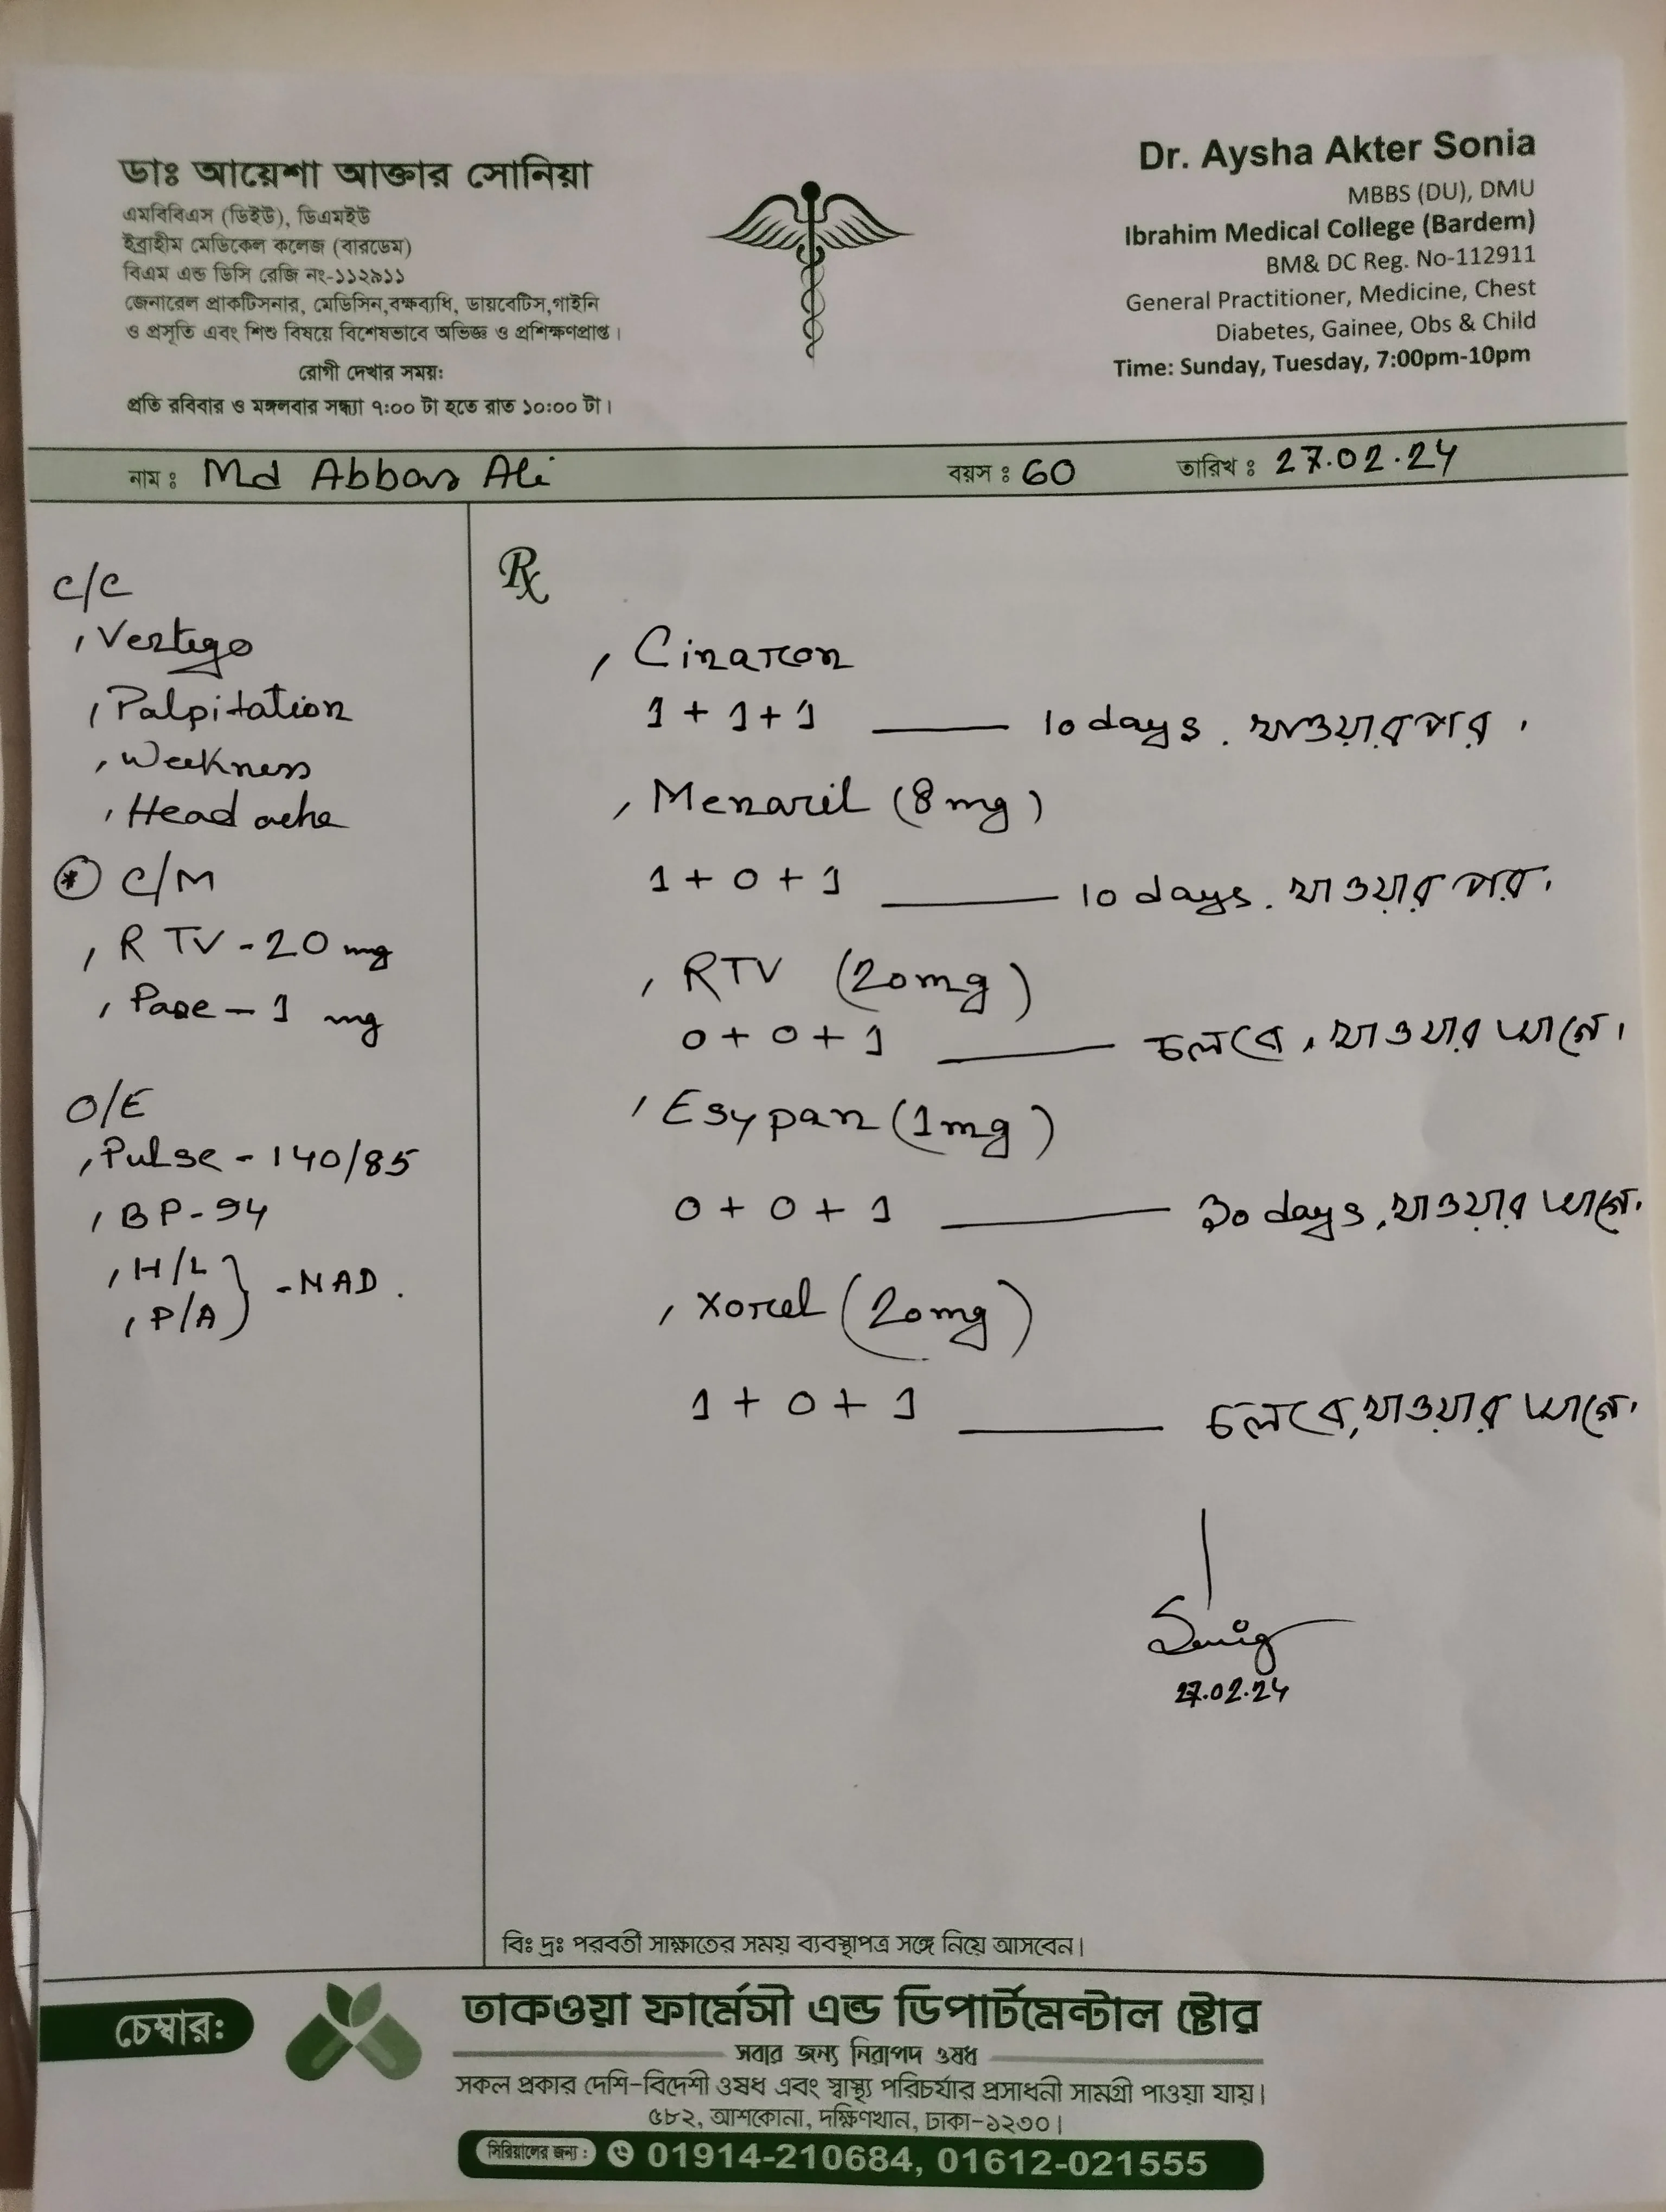 ডাঃ আয়েশা আক্তার সোনিয়া
এমবিবিএস (ডিইউ), ডিএমইউ
ইব্রাহীম মেডিকেল কলেজ (বারডেম)
বিএম এন্ড ডিসি রেজি নং-১১২৯১১
জেনারেল প্রাকটিসনার, মেডিসিন,বক্ষব্যধি, ডায়বেটিস,গাইনি
ও প্রসূতি এবং শিশু বিষয়ে বিশেষভাবে অভিজ্ঞ ও প্রশিক্ষণপ্রাপ্ত।
রোগী দেখার সময়ঃ
প্রতি রবিবার ও মঙ্গলবার সন্ধ্যা ৭:০০ টা হতে রাত ১০:০০ টা।
Dr. Aysha Akter Sonia
MBBS (DU), DMU
Ibrahim Medical College (Bardem)
BM& DC Reg. No-112911
General Practitioner, Medicine, Chest
Diabetes, Gainee, Obs & Child
Time: Sunday, Tuesday, 7:00pm-10pm
নাম ঃ Md Abbas Ali বয়স ঃ 60 তারিখ ঃ 27.02.24
C/C
, Vertigo
, Palpitation
, Weekness
, Head ache
* C/M
, R TV - 20 mg
, Pase - 1 mg
O/E
, Pulse - 140/85
, BP - 94
, H/L
, P/A } - NAD.
Rx
, Cinaron
1 + 1 + 1 —— 10 days. খাওয়ার পর।
, Menaril (8 mg)
1 + 0 + 1 —— 10 days. খাওয়ার পর।
, RTV (20mg)
0 + 0 + 1 —— চলবে, খাওয়ার আগে।
, Esypan (1mg)
0 + 0 + 1 —— 30 days, খাওয়ার আগে।
, Xorcel (20mg)
1 + 0 + 1 —— চলবে, খাওয়ার আগে।
27.02.24
বিঃ দ্রঃ পরবর্তী সাক্ষাতের সময় ব্যবস্থাপত্র সঙ্গে নিয়ে আসবেন।
চেম্বার:
তাকওয়া ফার্মেসী এন্ড ডিপার্টমেন্টাল ষ্টোর
সবার জন্য নিরাপদ ওষধ
সকল প্রকার দেশি-বিদেশী ওষধ এবং স্বাস্থ্য পরিচর্যার প্রসাধনী সামগ্রী পাওয়া যায়।
৫৮২, আশকোনা, দক্ষিণখান, ঢাকা-১২৩০।
সিরিয়ালের জন্য : 01914-210684, 01612-021555